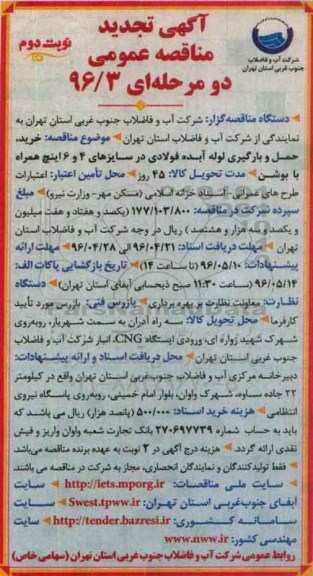 آگهی تجدید
مناقصه عمومی
دو مرحله‌ای ۹۶/۳
نوبت دوم
شرکت آب و فاضلاب
جنوب غربی استان تهران
دستگاه مناقصه‌گزار: شرکت آب و فاضلاب جنوب غربی استان تهران به
نمایندگی از شرکت آب و فاضلاب استان تهران موضوع مناقصه: خرید،
حمل و بارگیری لوله آبده فولادی در سایزهای ۴ و ۶ اینچ همراه
با بوشن مدت تحویل کالا: ۴۵ روز محل تأمین اعتبار: اعتبارات
طرح های عمرانی- اسناد خزانه اسلامی (مسکن مهر- وزارت نیرو) مبلغ
سپرده شرکت در مناقصه: ۱۷۷/۱۰۳/۸۰۰ (یکصد و هفتاد و هفت میلیون
و یکصد و سه هزار و هشتصد) ریال در وجه شرکت آب و فاضلاب استان
تهران مهلت دریافت اسناد: ۹۶/۰۴/۲۱ الی ۹۶/۰۴/۲۸ مهلت ارائه
پیشنهادات: ۹۶/۰۵/۱۰ (تا ساعت ۱۴) تاریخ بازگشایی پاکات الف:
۹۶/۰۵/۱۴ (ساعت ۱۱:۳۰ صبح ذیحسابی آبفای استان تهران) دستگاه
نظارت: معاونت نظارت بر بهره برداری بازرس فنی: بازرس مورد تأیید
کارفرما محل تحویل کالا: سه راه آدران به سمت شهریار، روبه‌روی
شهرک شهید زواره ای، ورودی ایستگاه CNG، انبار شرکت آب و فاضلاب
جنوب غربی استان تهران محل دریافت اسناد و ارائه پیشنهادات:
دبیرخانه مرکزی آب و فاضلاب جنوب‌غربی استان تهران واقع در کیلومتر
۲۲ جاده ساوه، شهرک واوان، بلوار امام خمینی، روبه‌روی پاسگاه نیروی
انتظامی هزینه خرید اسناد: ۵۰۰/۰۰۰ (پانصد هزار) ریال می باشد که
باید به حساب شماره ۲۷۰۶۹۷۷۳۹ بانک تجارت شعبه واوان واریز و فیش
نقدی ارائه گردد. هزینه درج آگهی در ۲ نوبت به عهده برنده مناقصه می‌باشد.
فقط تولیدکنندگان و نمایندگان انحصاری، مجاز به شرکت در مناقصه می باشند
سایت ملی مناقصات: http://iets.mporg.ir سایت
آبفای جنوب‌غربی استان تهران: Swest.tpww.ir سایت
سامانه کشوری: http://tender.bazresi.ir سایت
مهندسی کشور: www.nww.ir
روابط عمومی شرکت آب و فاضلاب جنوب غربی استان تهران (سهامی خاص)